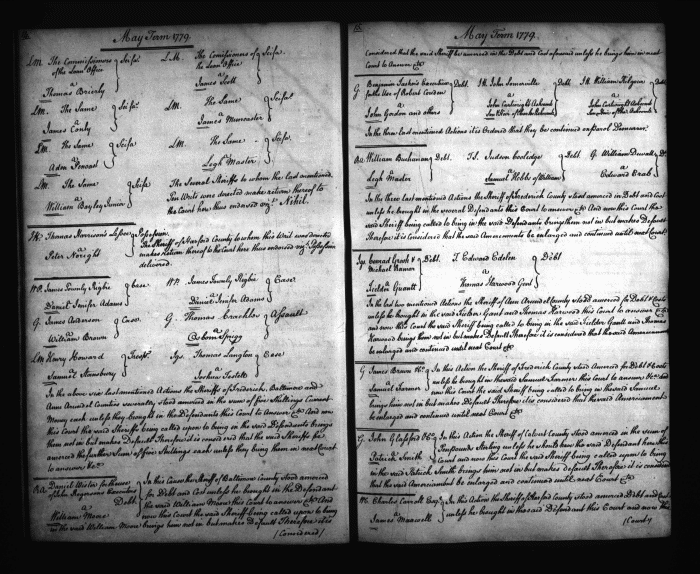 May Term 1779.
LM The Commissioners of the Loan Office
a
Thomas Brierly
Scifa.
LM. The Comissioners of the Loan Office
a
James Scott
Scifa.
LM. The Same
a
James Conly
Scifa.
LM. The Same
a
James Muncaster
Scifa.
LM. The Same
a
Aden Pensael
Scifa.
LM. The Same
a
Leigh Master
Scifa.
LM. The Same
a
William Bayley Junior
Scifa
The Several Sheriffs to whom the last mentioned
Ten Writs were directed make return thereof to
the Court here thus endorsed viz. Nihil.
Thomas Morrisons Lessee
a
Peter Noright
The Sheriff of Harford County to whom this Writ was directed
makes Return thereof to the Court here thus endorsed viz.
delivered
James Tounly Rigbie
a
Daniel Jenifer Adams
Case
James Tounly Rigbie
a
Daniel Jenifer Adams
Case.
G. James Anderson
a
William Brown
Case.
G. Thomas Crachles
a
Osborn Sprigg
Assault
LM Henry Howard
a
Samuel Stansbury
Tresps.
Thomas Langton
a
Joshua Testill
Case
In the above six last mentioned Actions the Sheriffs of Frederick, Baltimore and
Ann Arundel Counties severally stand amerced in the sum of five Shillings Current
Money each unless they brought in the Defendants this Court to Answer &ca And now
this Court the said Sheriffs being called upon to bring in the said Defendants brings
them not in but makes Default Therefore it is considered that the said Sheriffs be
amerced the further Sum of five Shillings each unless they bring them in next Court
to answer &ca.
Daniel Wister
of John Raynerson Executors
a
William Moore
Debt
In this Case the Sheriff of Baltimore County stood amerced
for Debt and Cost unless he brought in the Defendant
the said William Moore this Court to answer &ca And
now this Court the said Sheriff being called upon to bring
in the said William Moore brings him not in but makes Default Therefore it is
(Considered)
May Term 1779.
Considered that the said Sheriff be amerced in the Debt and Cost aforesaid unless he brings him in next
Court to Answer &ca
G Benjamin Taskers Executors
for the Use of Robert Couden
a
John Gordon and others
Debt
John Somerville
a
John Cartwright Ashcomb
Debt
William Holgein
a
John Cartwright Ashcomb
Debt
In the three last mentioned Actions it is Ordered that they be continued
William Buchanan
a
Leigh Master
Debt.
Judson Cooledge
a
Samuel Hobbs of William
Debt.
G. William Duvall
a
Edward Crab
In the three last mentioned Actions the Sheriff of Frederick County stood amerced in Debt and Cost
unless he brought in the several Defendants this Court to answer &ca And now this Court the said
Sheriff being called to bring in the said Defendants brings them not in but makes Default
Therefore it is considered that the said Amercements be enlarged and continued until next Court.
Conrad Grosh &
Michael Raimer
a
Fielder Gantt
Debt.
Edward Edelen
a
Thomas Harwood Gent
Debt
In the last two mentioned Actions the Sheriff of Ann Arundel County stood amerced for Debt & Costs
unless he brought in the said Fielder Gantt and Thomas Harwood this Court to answer &ca
and now this Court the said Sheriff being called to bring in the said Fielder Gantt and Thomas
Harwood brings them not in but makes Default Therefore it is considered that the said Amercements
be enlarged and continued until next Court &ca
G James Brown &Co.
a
Samuel Farmer
In this Action the Sheriff of Frederick County stood amerced for Debt & Costs
unless he brought in the said Samuel Farmer this Court to answer &ca and
now this Court the said Sheriff being called to bring in the said Samuel
brings him not in but makes Default Therefore it is considered that the said Amercement
be enlarged and continued until next Court &ca
G. John Glassford &Co.
a
Patrick Smith
In this Action the Sheriff of Calvert County stood amerced in the sum of
Ten pounds Sterling unless he should have the said Defendant here this
Court and now this Court the said Sheriff being called upon to bring
in the said Patrick Smith brings him not in but makes default Therefore it is considered
that the said Amercement be enlarged and continued until next Court &ca
Charles Carroll Esqr.
a
James Maxwell
In this Action the Sheriff of Harford County stood amerced Debt and Cost
unless he brought in the said Defendant this Court and now this
(Court)